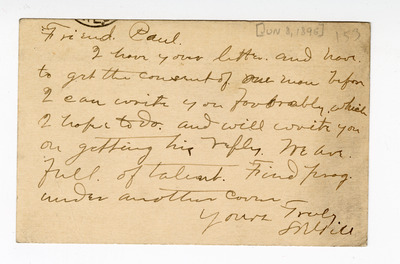 [JUN 8, 1896] 153
Friend Paul.
I have your letter. and have
to get the consent of one man before
I can write you favorably which
I hope to do. and will write you
on getting his reply. We are
full. of talent. Find prog.
under another cover
Yours Truly